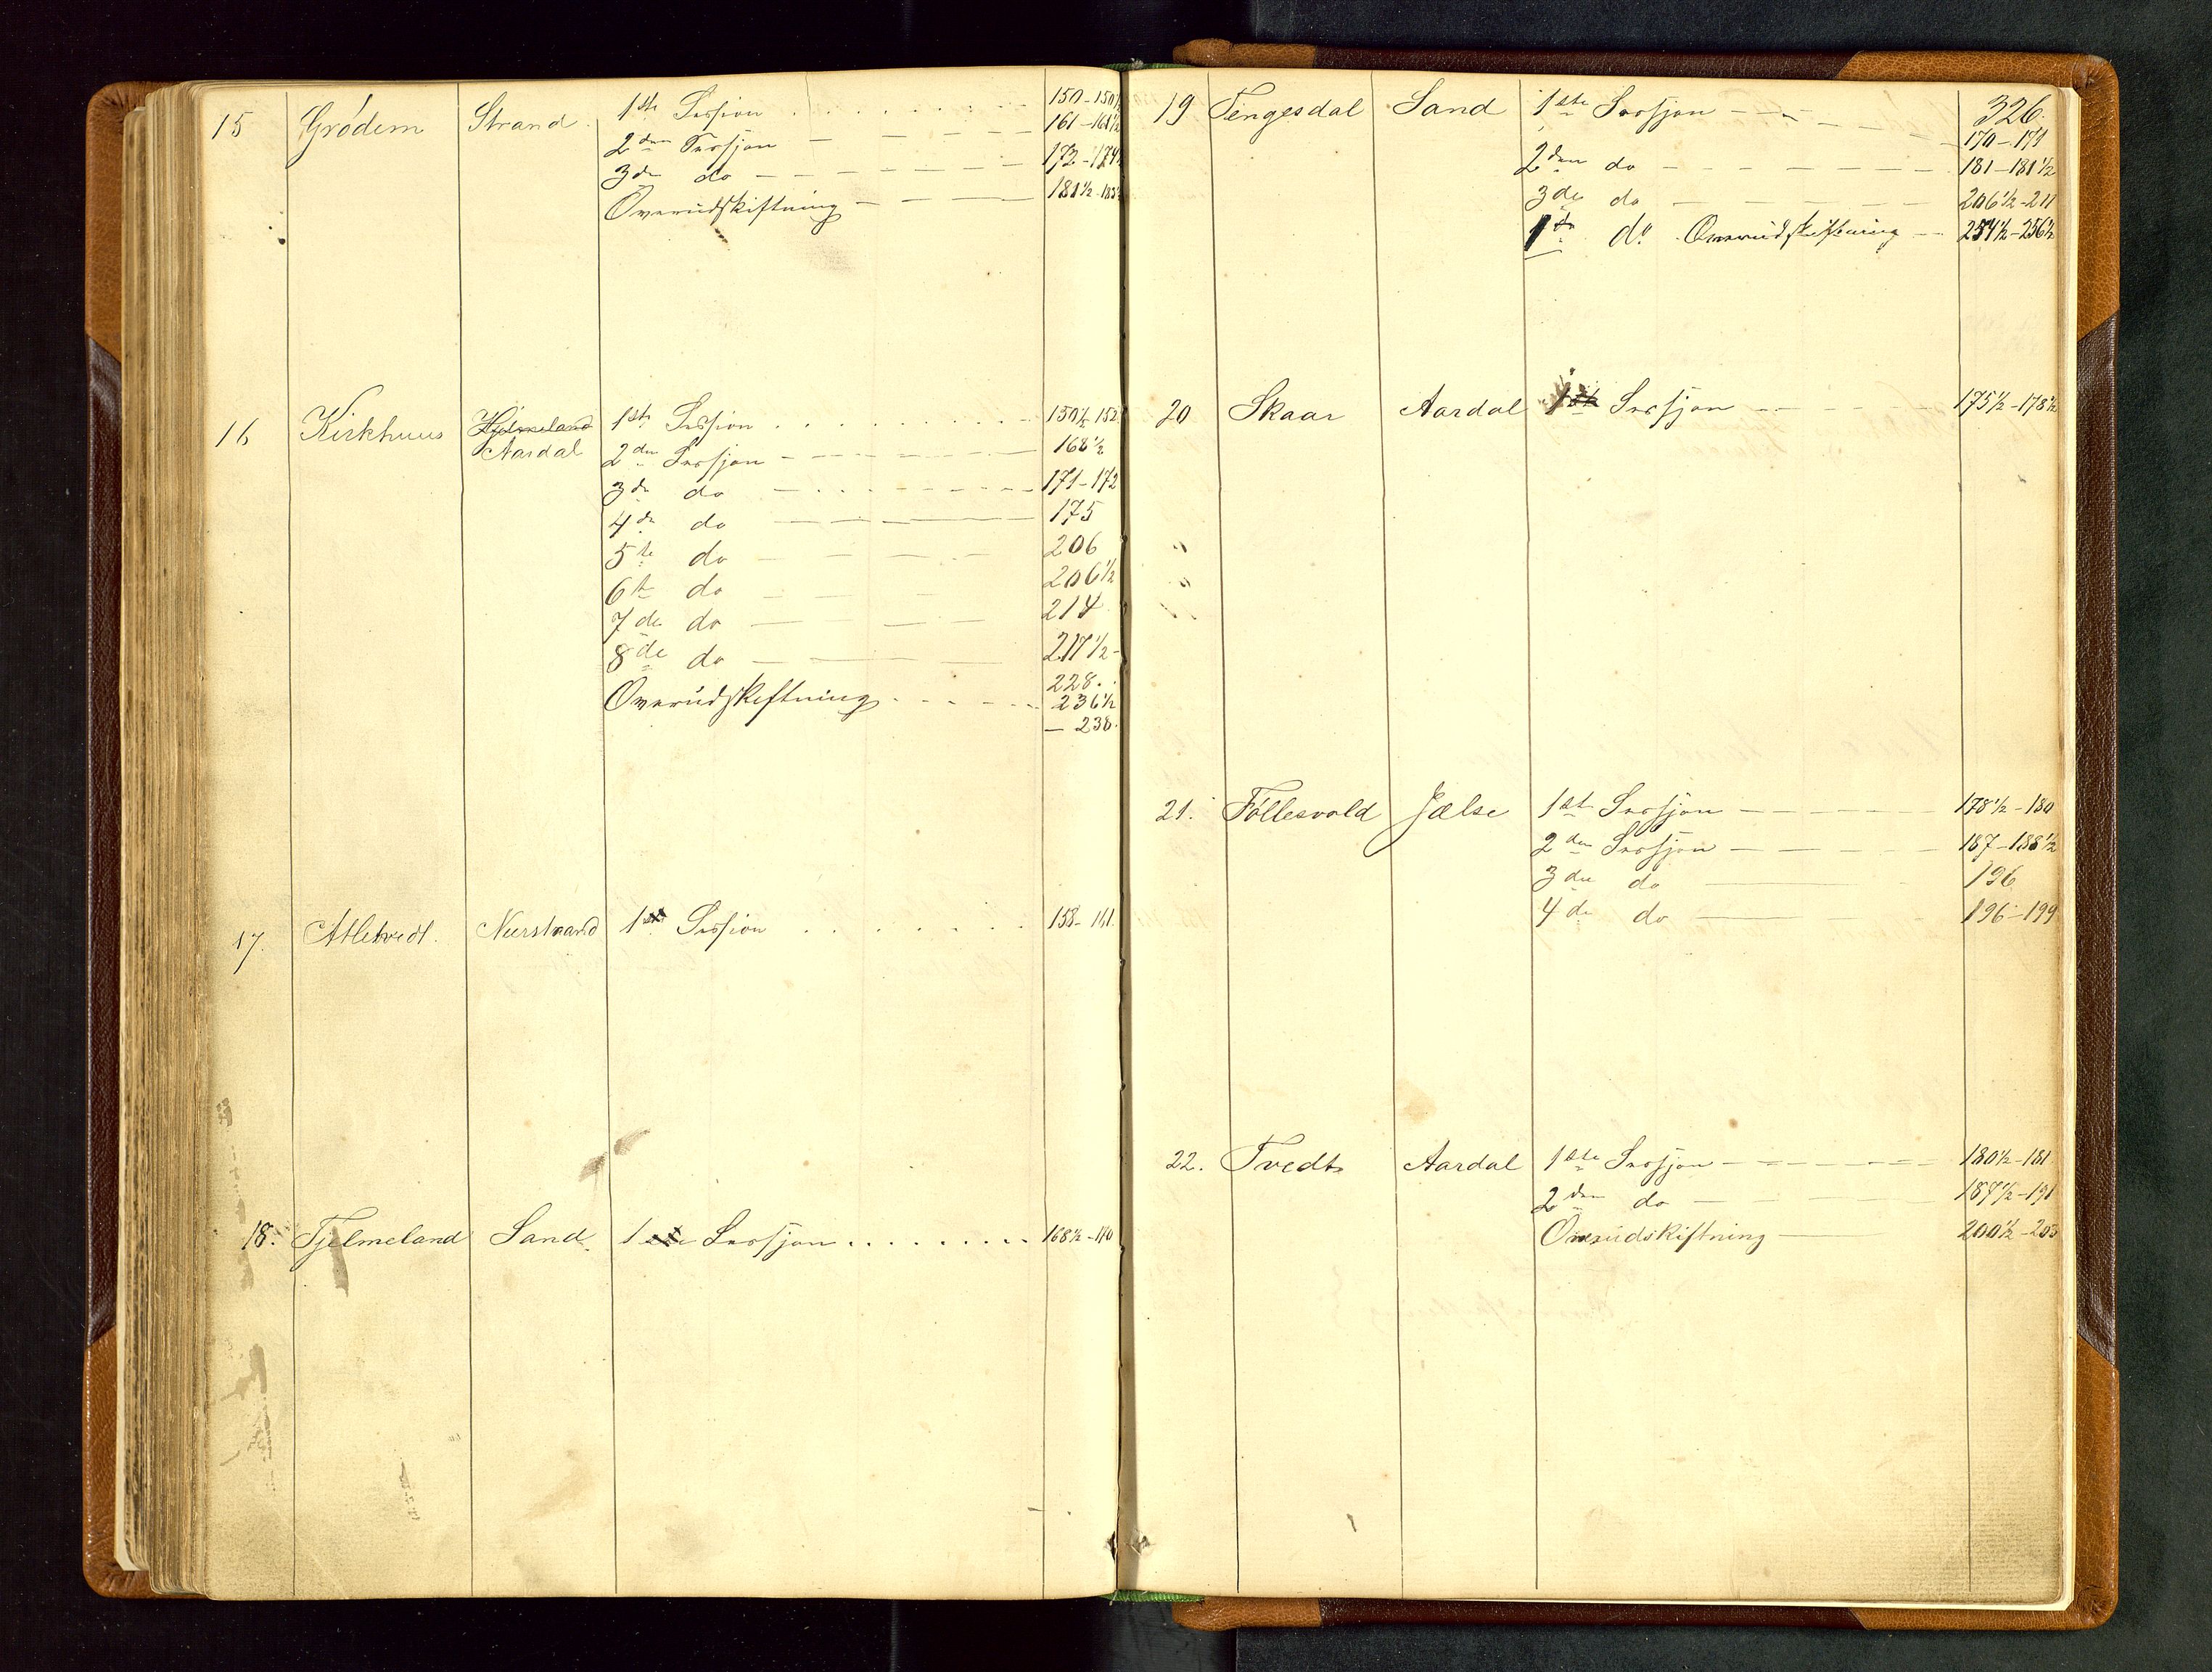 15 Grödem Strand. 1ste Session 150-150½
2den Session 161-161½
3de do 172-174½
Overudskiftning 181½-183½
16 Kirkhuus Hjelmeland 1ste Session 150½-152
Aardal 2den Sessjon 168½
3de do 171-172
4de do 175
5te do 206
6te do 206½
7de do 214
8de do 217½-
228.
Overudskiftning 236½
- 238.
17. Atletvedt. Neerstrand 1ste Session 158-161.
18. Tjelmeland Sand. 1ste Sessjon 168½-170
326.
19 Tengesdal Sand 1ste Sessjon 170-171
2den do 181-181½
3de do 206½-211
1ste do. Overudskiftning 254½-256½
20 Skaar Aardal 1ste Sessjon 175½-178½
21. Föllesvold Jælse 1ste Sessjon 178½-180
2den Sessjon 187-188½
3die do 196
4de do 196-199
22. Tvedt Aardal 1ste Sessjon 180½-181
2den do 187½-191
Overudskiftning 200½-203